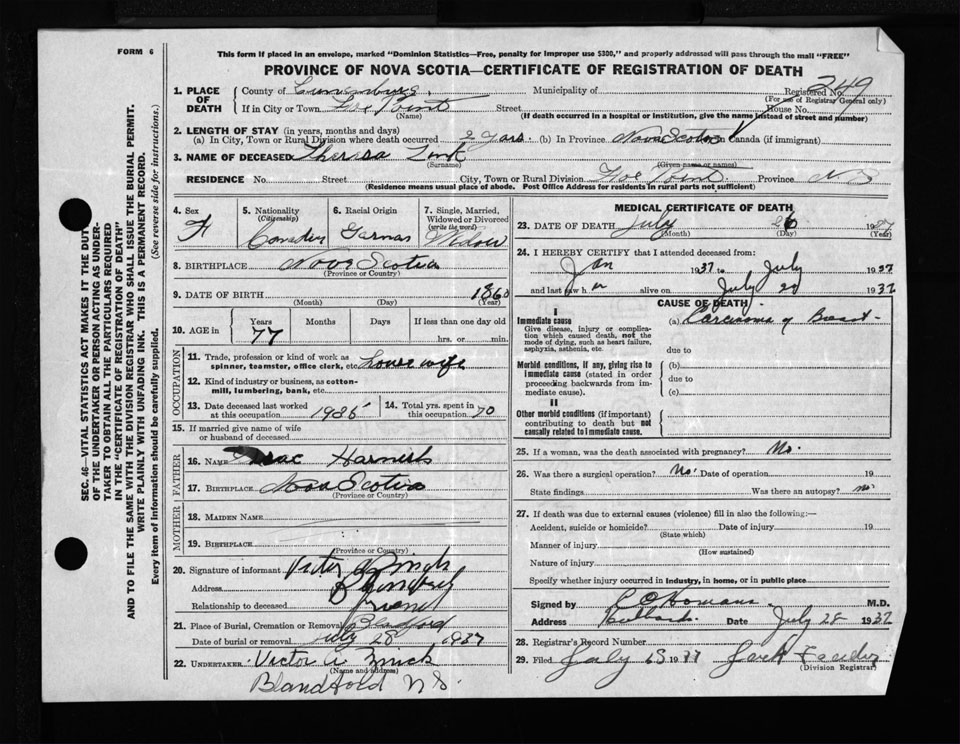 FORM 6
This form if placed in an envelope, marked "Dominion Statistics—Free, penalty for improper use $300," and properly addressed will pass through the mail "FREE"
PROVINCE OF NOVA SCOTIA—CERTIFICATE OF REGISTRATION OF DEATH
SEC. 46—VITAL STATISTICS ACT MAKES IT THE DUTY
OF THE UNDERTAKER OR PERSON ACTING AS UNDER-
TAKER TO OBTAIN ALL THE PARTICULARS REQUIRED
IN THE "CERTIFICATE OF REGISTRATION OF DEATH"
AND TO FILE THE SAME WITH THE DIVISION REGISTRAR WHO SHALL ISSUE THE BURIAL PERMIT.
WRITE PLAINLY WITH UNFADING INK. THIS IS A PERMANENT RECORD.
Every item of information should be carefully supplied. (See reverse side for instructions.)
1. PLACE OF DEATH
County of Lunenburg, Municipality of Registered No. 249
(For use of Registrar General only)
If in City or Town Point Street House No.
(Name) (If death occurred in a hospital or institution, give the name instead of street and number)
2. LENGTH OF STAY (in years, months and days)
(a) In City, Town or Rural Division where death occurred 2 years. (b) In Province Nova Scotia in Canada (if immigrant)
3. NAME OF DECEASED Theresa Zink
(Surname) (Given name or names)
RESIDENCE No. Street City, Town or Rural Division Point Province N S
(Residence means usual place of abode. Post Office Address for residents in rural parts not sufficient)
4. Sex F
5. Nationality (Citizenship)
6. Racial Origin German
7. Single, Married, Widowed or Divorced (write the word) Widow
8. BIRTHPLACE Nova Scotia
(Province or Country)
9. DATE OF BIRTH 1860
(Month) (Day) (Year)
10. AGE in Years 77 Months Days If less than one day old
hrs. or min.
OCCUPATION
11. Trade, profession or kind of work as spinner, teamster, office clerk, etc. house wife
12. Kind of industry or business, as cotton-mill, lumbering, bank, etc.
13. Date deceased last worked at this occupation 14. Total yrs. spent in this occupation
15. If married give name of wife or husband of deceased
FATHER
16. NAME Isaac Harnish
17. BIRTHPLACE Nova Scotia
(Province or Country)
MOTHER
18. MAIDEN NAME
19. BIRTHPLACE
(Province or Country)
20. Signature of informant Victor
Address
Relationship to deceased friend
21. Place of Burial, Cremation or Removal Blandford
Date of burial or removal July 28 1937
22. UNDERTAKER Victor A Zinck
(Name and address)
Blandfold N S.
MEDICAL CERTIFICATE OF DEATH
23. DATE OF DEATH July 26 1937
(Month) (Day) (Year)
24. I HEREBY CERTIFY that I attended deceased from:
Jan 1937 to July 1937
and last saw her alive on July 20 1937
CAUSE OF DEATH
I
Immediate cause (a) Carcinoma of Breast
Give disease, injury or complica-
tion which caused death, not the due to
mode of dying, such as heart failure,
asphyxia, asthenia, etc.
Morbid conditions, if any, giving rise to (b)
immediate cause (stated in order due to
proceeding backwards from im-
mediate cause). (c)
II
Other morbid conditions (if important)
contributing to death but not
causally related to immediate cause.
25. If a woman, was the death associated with pregnancy? No.
26. Was there a surgical operation? No. Date of operation 19
State findings Was there an autopsy? no
27. If death was due to external causes (violence) fill in also the following:—
Accident, suicide or homicide? Date of injury 19
(State which)
Manner of injury
(How sustained)
Nature of injury
Specify whether injury occurred in industry, in home, or in public place
Signed by M.D.
Address Hubbards Date July 28 1937
28. Registrar's Record Number
29. Filed July 1937
(Division Registrar)